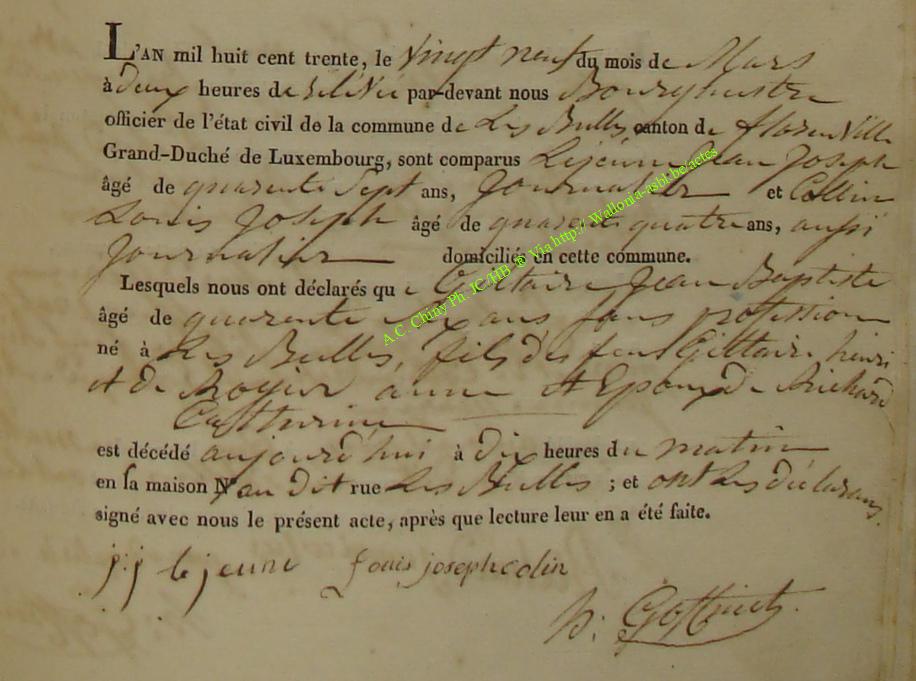 L'AN mil huit cent trente, le vingt neuf du mois de Mars
à deux heures de rélévée par-devant nous Bourgmestre
officier de l'état civil de la commune de Les Bulles, canton de florenville
Grand-Duché de Luxembourg, sont comparus Lejeune Jean Joseph
âgé de quarente sept ans, Journalier et Collin
Louis Joseph âgé de quarente quatre ans, aussi
Journalier domiciliés en cette commune.
Lesquels nous ont déclarés que Jean Baptiste
âgé de quarente ans sans profession
né à Les Bulles, fils des feu henri
et de Rogier anne et Epoux de Richard
Catherine
est décédé aujourd'hui à dix heures du matin
en sa maison N° au dit rue Les Bulles ; et ont Les déclarans
signé avec nous le présent acte, après que lecture leur en a été faite.
j: j le jeune Louis joseph colin
h: Goffinet
A.C. Chiny Ph. JC HB ® Via http:// Wallonia-asbl.be/actes